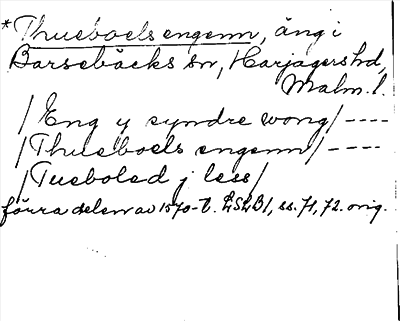 *Thueboels engenn, äng i
Barsebäcks sn, Harjagers hd,
Malm. l.
/Eng y syndre wong/----
/Thueboels engenn/----
/Tueboled j less/
förra delen av 1570-t. LSLB1, ss. 71, 72. orig.